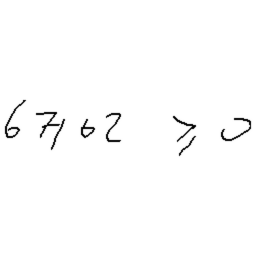 67162 ≥ 0